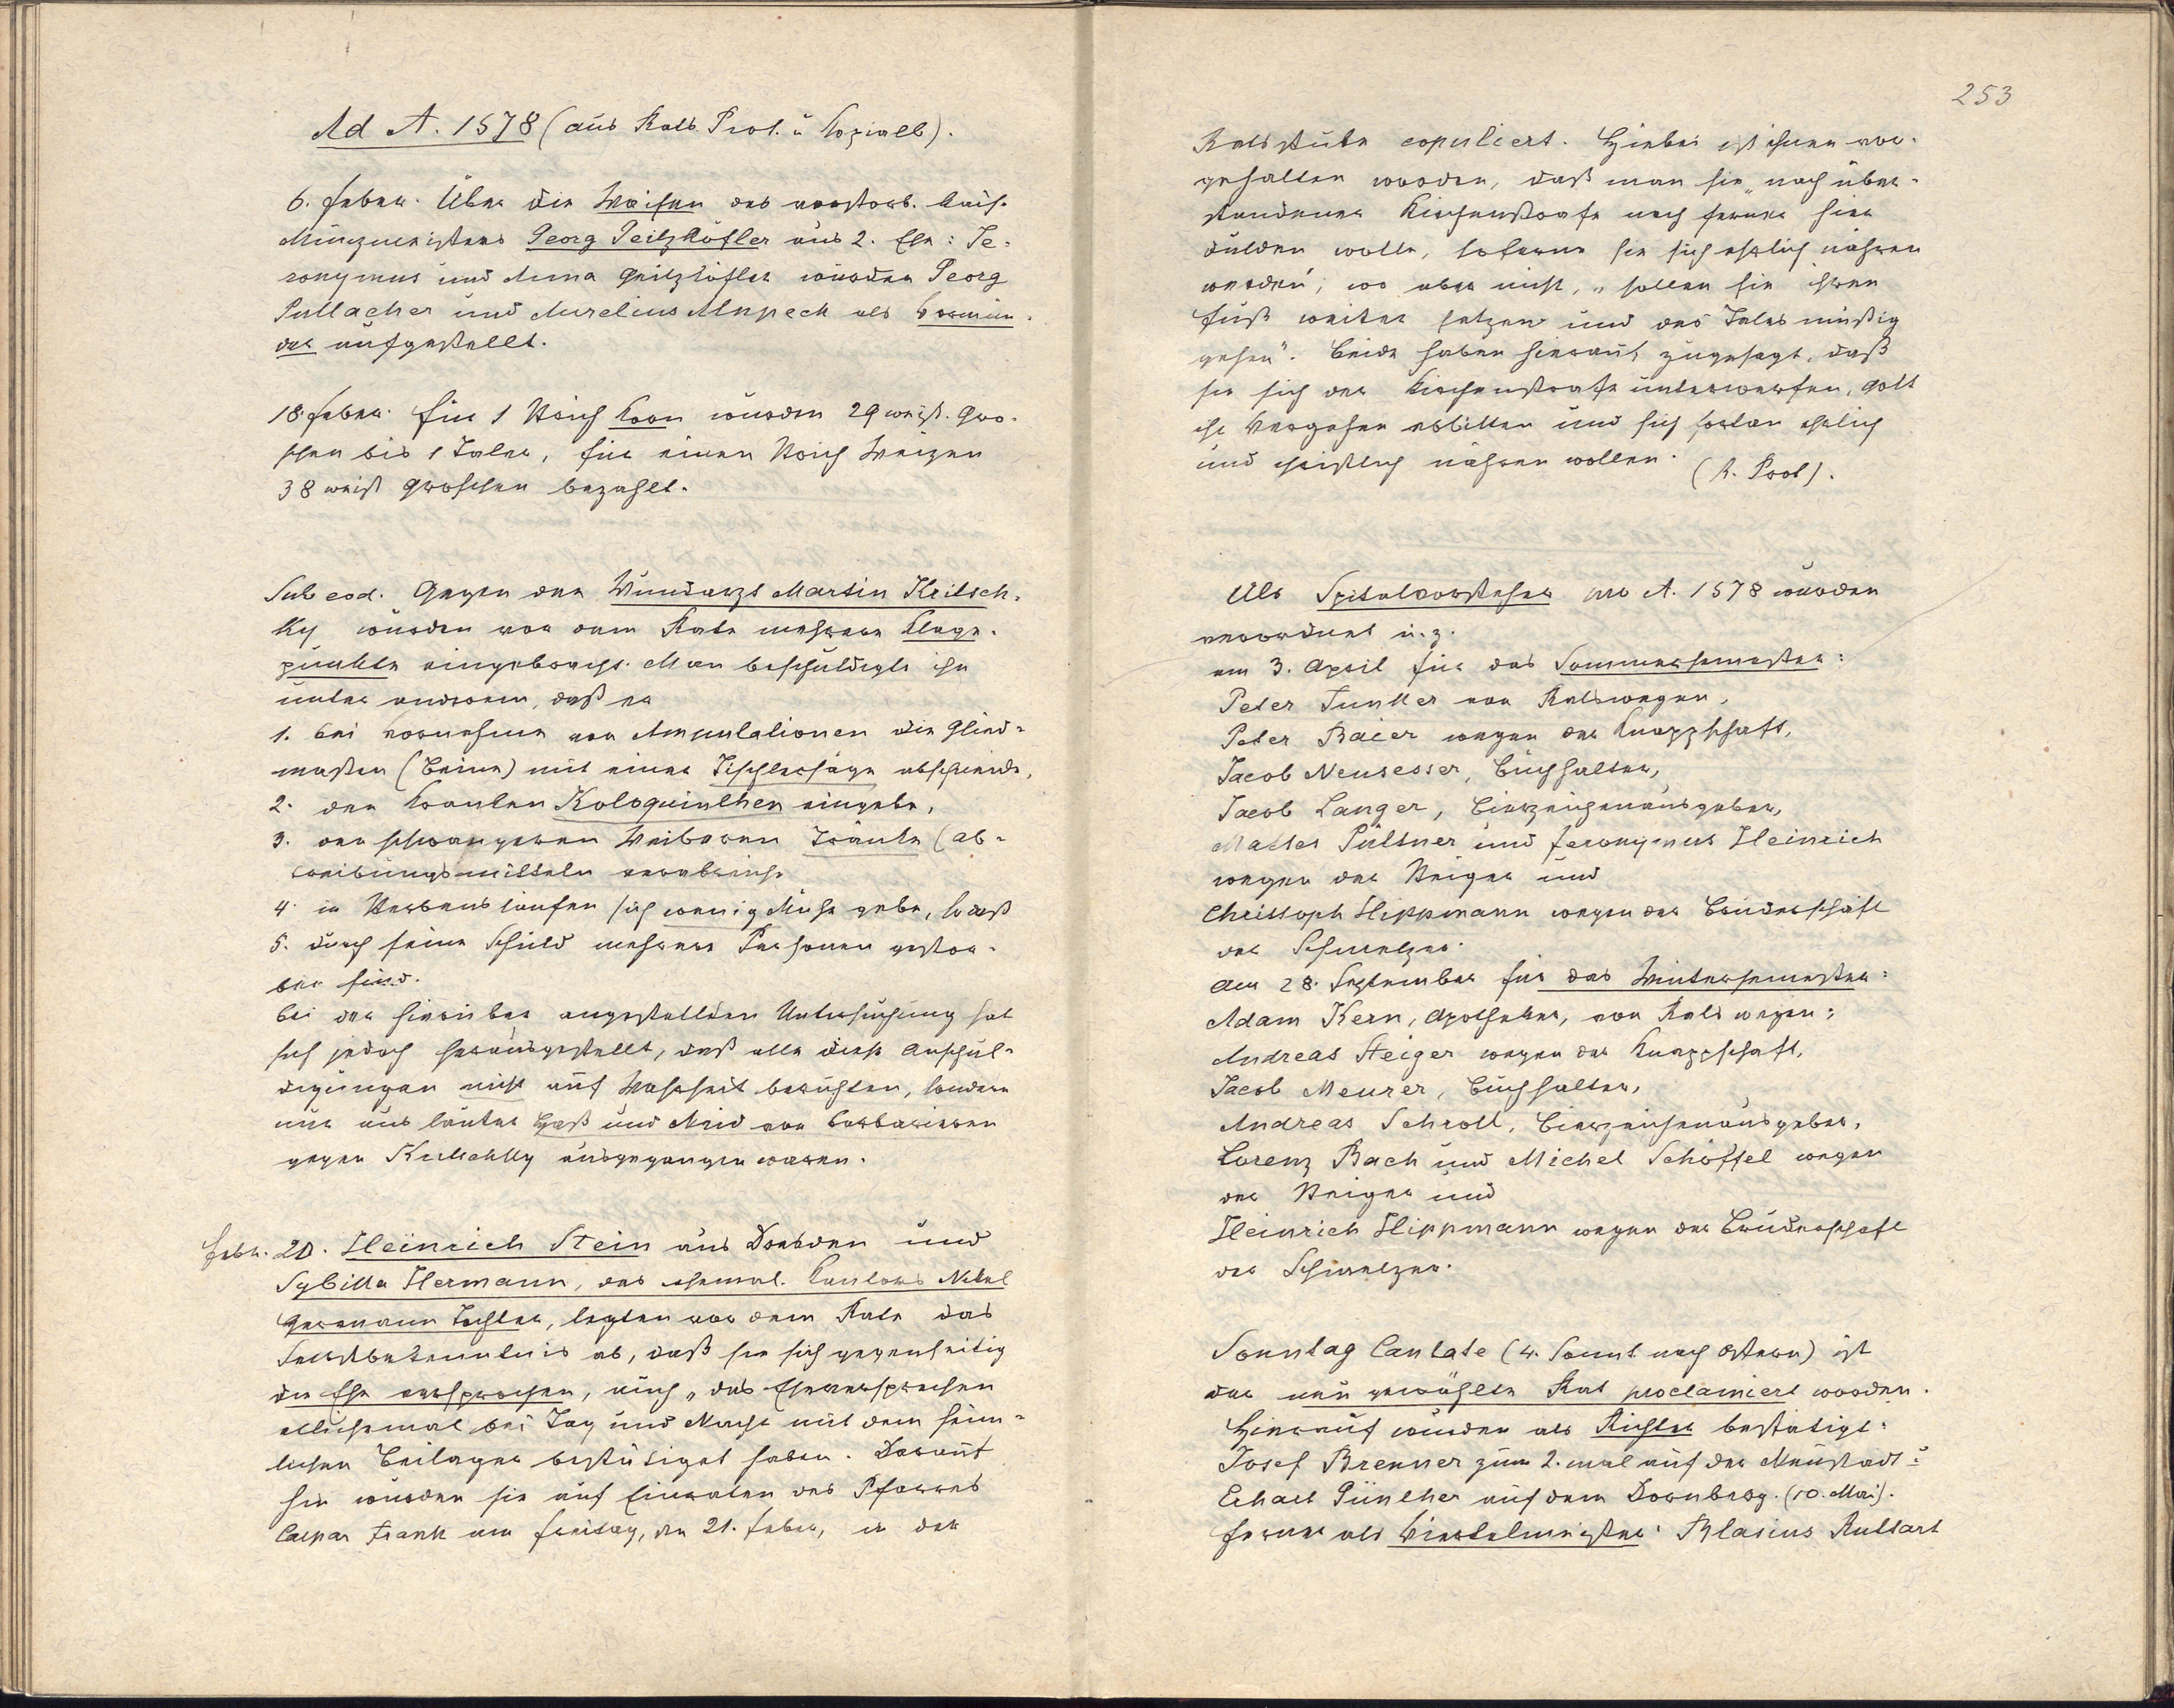 Ad A. 1578 (aus Rats Prot. u Kopialb).
6. Feber. Über die Waisen des verstorb. kais.
Münzmeisters Georg Geitzkofler aus 2. Ehe: Je-
ronymus und Anna Geitzkofler wurden Georg
Pullacher und Aurelius Alnpeck als Vormün-
der aufgestellt.
18. Feber. Für 1 Strich Korn wurden 29 weiß. Gro-
schen bis 1 Taler, für einen Strich Weizen
38 weiß Groschen bezahlt.
Sub eod. Gegen den Wundarzt Martin Kritsch-
ky wurden vor dem Rate mehrere Klage-
punkte eingebracht. Man beschuldigte ihn
unter anderem, daß er
1. bei Vornehme von Amputationen die Glied-
maßen (Beine) mit einer Tischlersäge abschneide,
2. den Kranken Koloquinthen eingebe,
3. den schwangeren Weiberen Tränke (ab-
treibungsmitteln verabreicht
4. in Sterbensläufen sich wenig Mühe gebe, sodaß
5. durch seine Schuld mehrere Personen gestor-
ben sind.
Bei der hierüber angestellten Untersuchung hat
sich jedoch herausgestellt, daß alle diese Anschul-
digungen nicht auf Wahrheit beruhten, sondern
nur aus lauter Haß und Neid von Barbierern
gegen Kritschky ausgegangen waren.
Febr. 20. Heinrich Stein aus Dresden und
Sybilla Hermann, des ehemal. Kantors Nikel
Hermann Tochter, legten vor dem Rate das
Selbstbekenntnis ab, daß sie sich gegenseitig
die Ehe versprochen, auch „das Eheversprechen
etlichemal bei Tag und Nacht mit dem heim-
lichen Beilager bestätiget haben. Darauf
hin wurden sie auf Einraten des Pfarrers
Caspar Frank am Freitag, den 21. Feber, in der
253
Ratsstube copuliert. Hiebei ist ihnen vor-
gehalten worden, daß man sie „nach über-
standener Kirchenstrafe noch ferner hier
dulden wolle, soferne sie sich ehrlich nähren
werden; wo aber nicht, „sollen sie ihren
Fuß weiter setzen und des Tales müßig
gehen". Beide haben hierauf zugesagt, daß
sie sich der Kirchenstrafe unterwerfen, Gott
ihr Vergehen abbitten und sich fortan ehrlich
und christlich nähren wollen. (R. Prot).
Als Spitalvorsteher pro A. 1578 wurden
verordnet u. z.
am 3. April für das Sommersemester:
Peter Junker von Ratswegen,
Peter Baier wegen der Knappschaft,
Jacob Neusesser, Buchhalter,
Jacob Langer, Bierzeichenausgeber,
Mattes Püttner und Jeronymus Heinrich
wegen der Steiger und
Christoph Hippmann wegen der Bruderschaft
der Schmelzer.
Am 28. September für das Wintersemester:
Adam Kern, Apotheker, von Rats wegen;
Andreas Steiger wegen der Knappschaft,
Jacob Meurer, Buchhalter,
Andreas Schroll, Bierzeichenausgeber,
Lorenz Bach und Michel Schöffel wegen
der Steiger und
Heinrich Hippmann wegen der Bruderschaft
der Schmelzer.
Sonntag Cantate (4. Sonnt. nach Ostern) ist
der neu gewählte Rat proclamiert worden.
Hierauf wurden als Richter bestätigt:
Josef Brenner zum 2. mal auf der Neustadt u
Erhart Günther auf dem Dornberg. (10. Mai).
Ferner als Viertelmeister: Blasius Ruttart